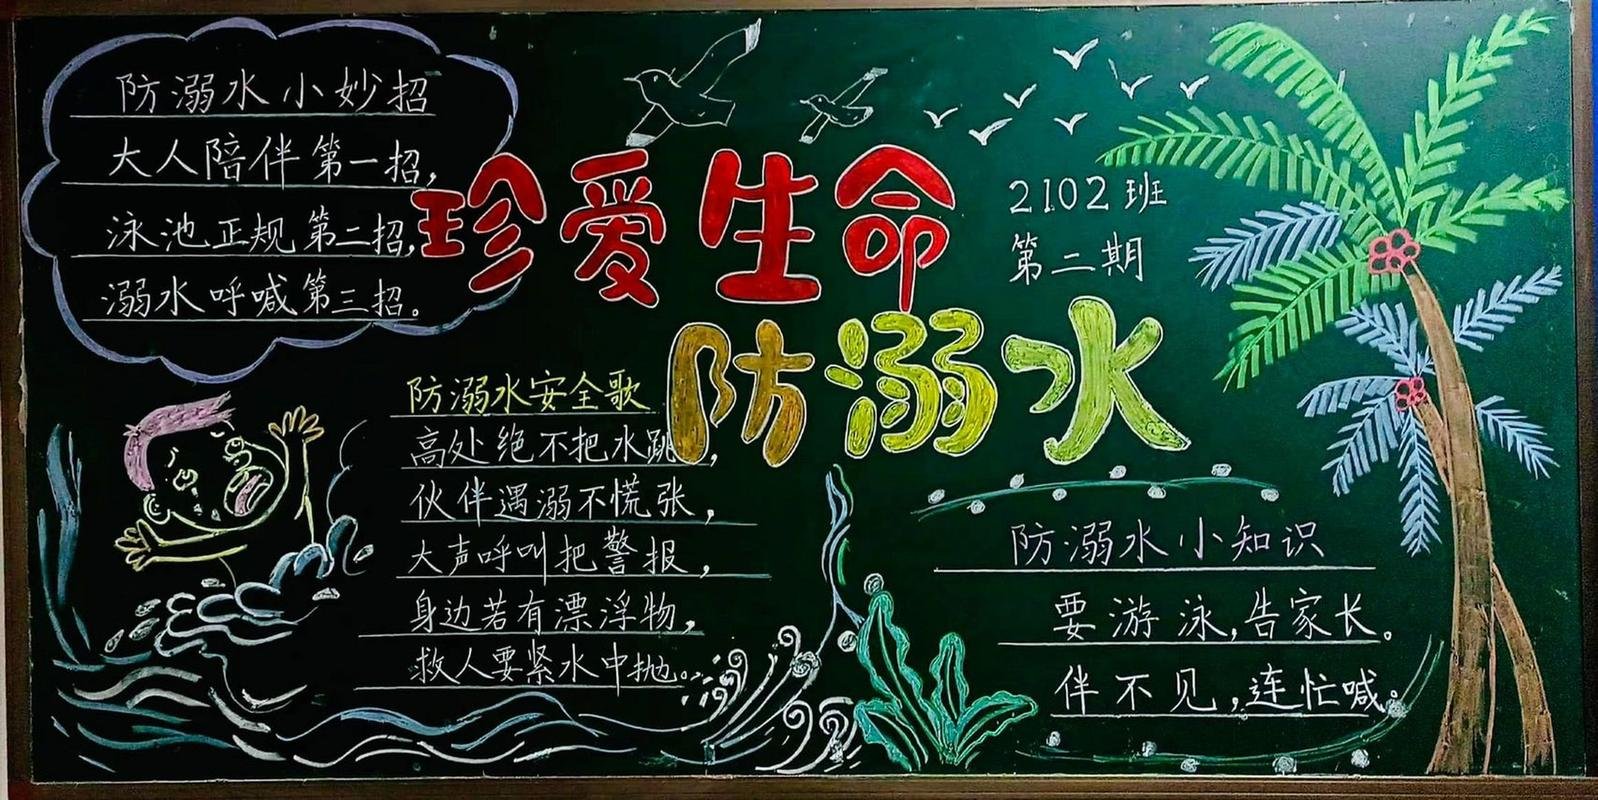 防溺水小妙招
大人陪伴第一招,
泳池正规第二招,
溺水呼喊第三招。
珍爱生命
防溺水
2102班
第二期
防溺水安全歌
高处绝不把水跳,
伙伴遇溺不慌张,
大声呼叫把警报,
身边若有漂浮物,
救人要紧水中抛。
防溺水小知识
要游泳,告家长。
伴不见,连忙喊。